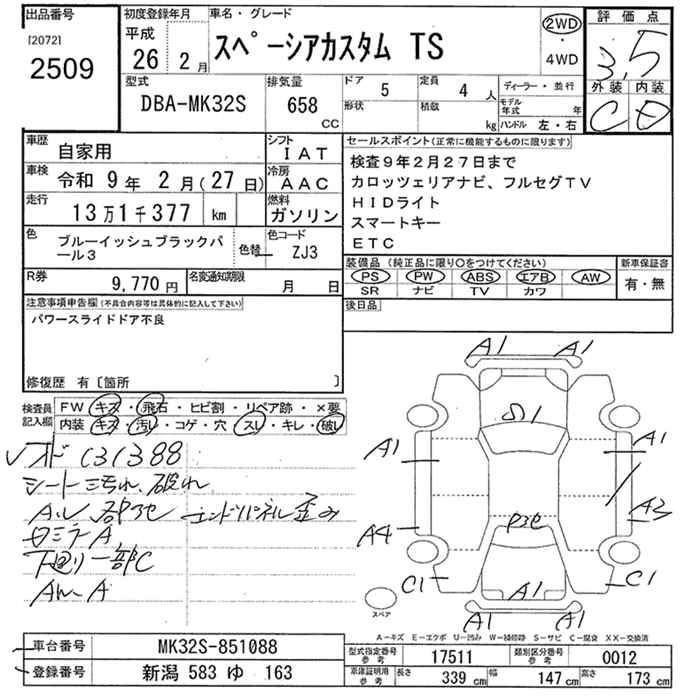 出品番号
[2072]
2509
初度登録年月
平成
26 2月
車名・グレード
スペーシアカスタム TS
2WD
・
4WD
評価点
3.5
外装 内装
C D
型式
DBA-MK32S
排気量
658
CC
ドア 5
形状
定員 4人
積載 kg
ディーラー・並行
モデル年式 年
ハンドル 左・右
車歴
自家用
シフト
IAT
車検
令和 9年 2月(27日)
冷房
AAC
走行
13万1千377 km
燃料
ガソリン
色
ブルーイッシュブラックパール3
色替
色コード
ZJ3
R券
9,770円
名変通知期限
月 日
セールスポイント(正常に機能するものに限ります)
検査9年2月27日まで
カロッツェリアナビ、フルセグTV
HIDライト
スマートキー
ETC
装備品(純正品に限り○をつけてください)
PS PW ABS エアB AW
SR ナビ TV カワ
新車保証書
有・無
後日品
注意事項申告欄(不具合内容等は具体的に記入して下さい)
パワースライドドア不良
修復歴 有〔箇所 〕
検査員記入欄
FW キズ・飛石・ヒビ割・リペア跡・×要
内装 キズ・汚れ・コゲ・穴・スレ・キレ・破れ
131388
シート三汚れ、破れ
エンドパネル歪み
ロミラーA
下廻り一部C
A1 A1
S1
A1 A1
A4 A3
C1 C1
A1
A1 A1
スペア
A-キズ E-エクボ U-凹み W-補修跡 S-サビ C-腐食 XX-交換済
車台番号
MK32S-851088
登録番号
新潟 583 ゆ 163
型式指定番号 参考
17511
類別区分番号 参考
0012
車庫証明用 参考
長さ 339 cm
幅 147 cm
高さ 173 cm